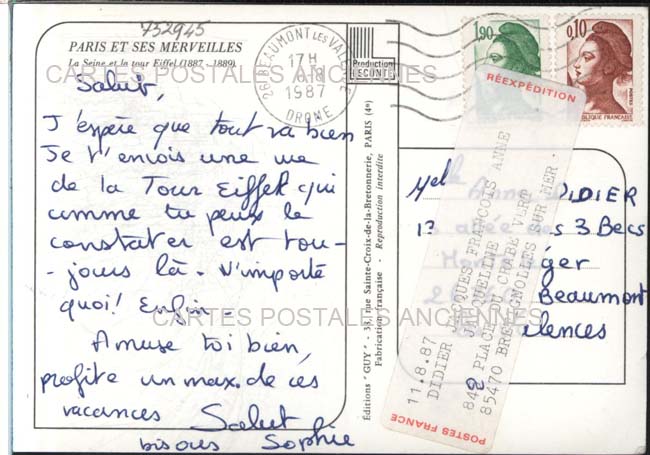 752945
PARIS ET SES MERVEILLES
La Seine et la tour Eiffel (1887 - 1889).
Salut,
J'espère que tout va bien
Je t'envois une vue
de la Tour Eiffel qui
comme tu peux le
constater est tou-
-jours là. N'importe
quoi! Enfin -
Amuse toi bien,
profite un max. de ces
vacances Salut
bisous Sophie
CARTES POSTALES ANCIENNES
CARTES POSTALES ANCIENNES
26 BEAUMONT LES VALENCE
17H
1987
DROME
Production
LESCUYER
Éditions "GUY" - 33, rue Sainte-Croix-de-la-Bretonnerie, PARIS (4e)
Fabrication française - Reproduction interdite
1,90
0,10
POSTES
RÉPUBLIQUE FRANÇAISE
Mel Anne DIDIER
13 3 Becs
Beaumont
Valences
RÉEXPÉDITION
11.8.87
DIDIER JACQUES FRANCOIS ANNE
JACQUELINE
842 PLACE DU CRABE VERT
85470 BRETIGNOLLES SUR MER.
POSTES FRANCE